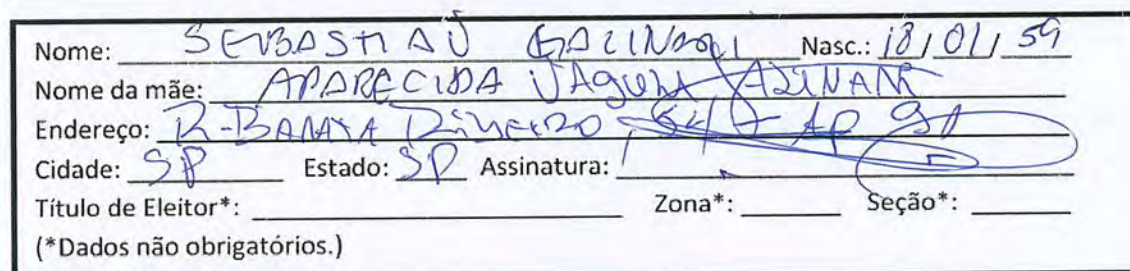 Nome: SEBASTIAO GALINARI Nasc.: 18/01/59
Nome da mãe: APARECIDA
Endereço: R-BARATA RIBEIRO, AP 91
Cidade: SP Estado: SP Assinatura:
Título de Eleitor*: Zona*: Seção*:
(*Dados não obrigatórios.)